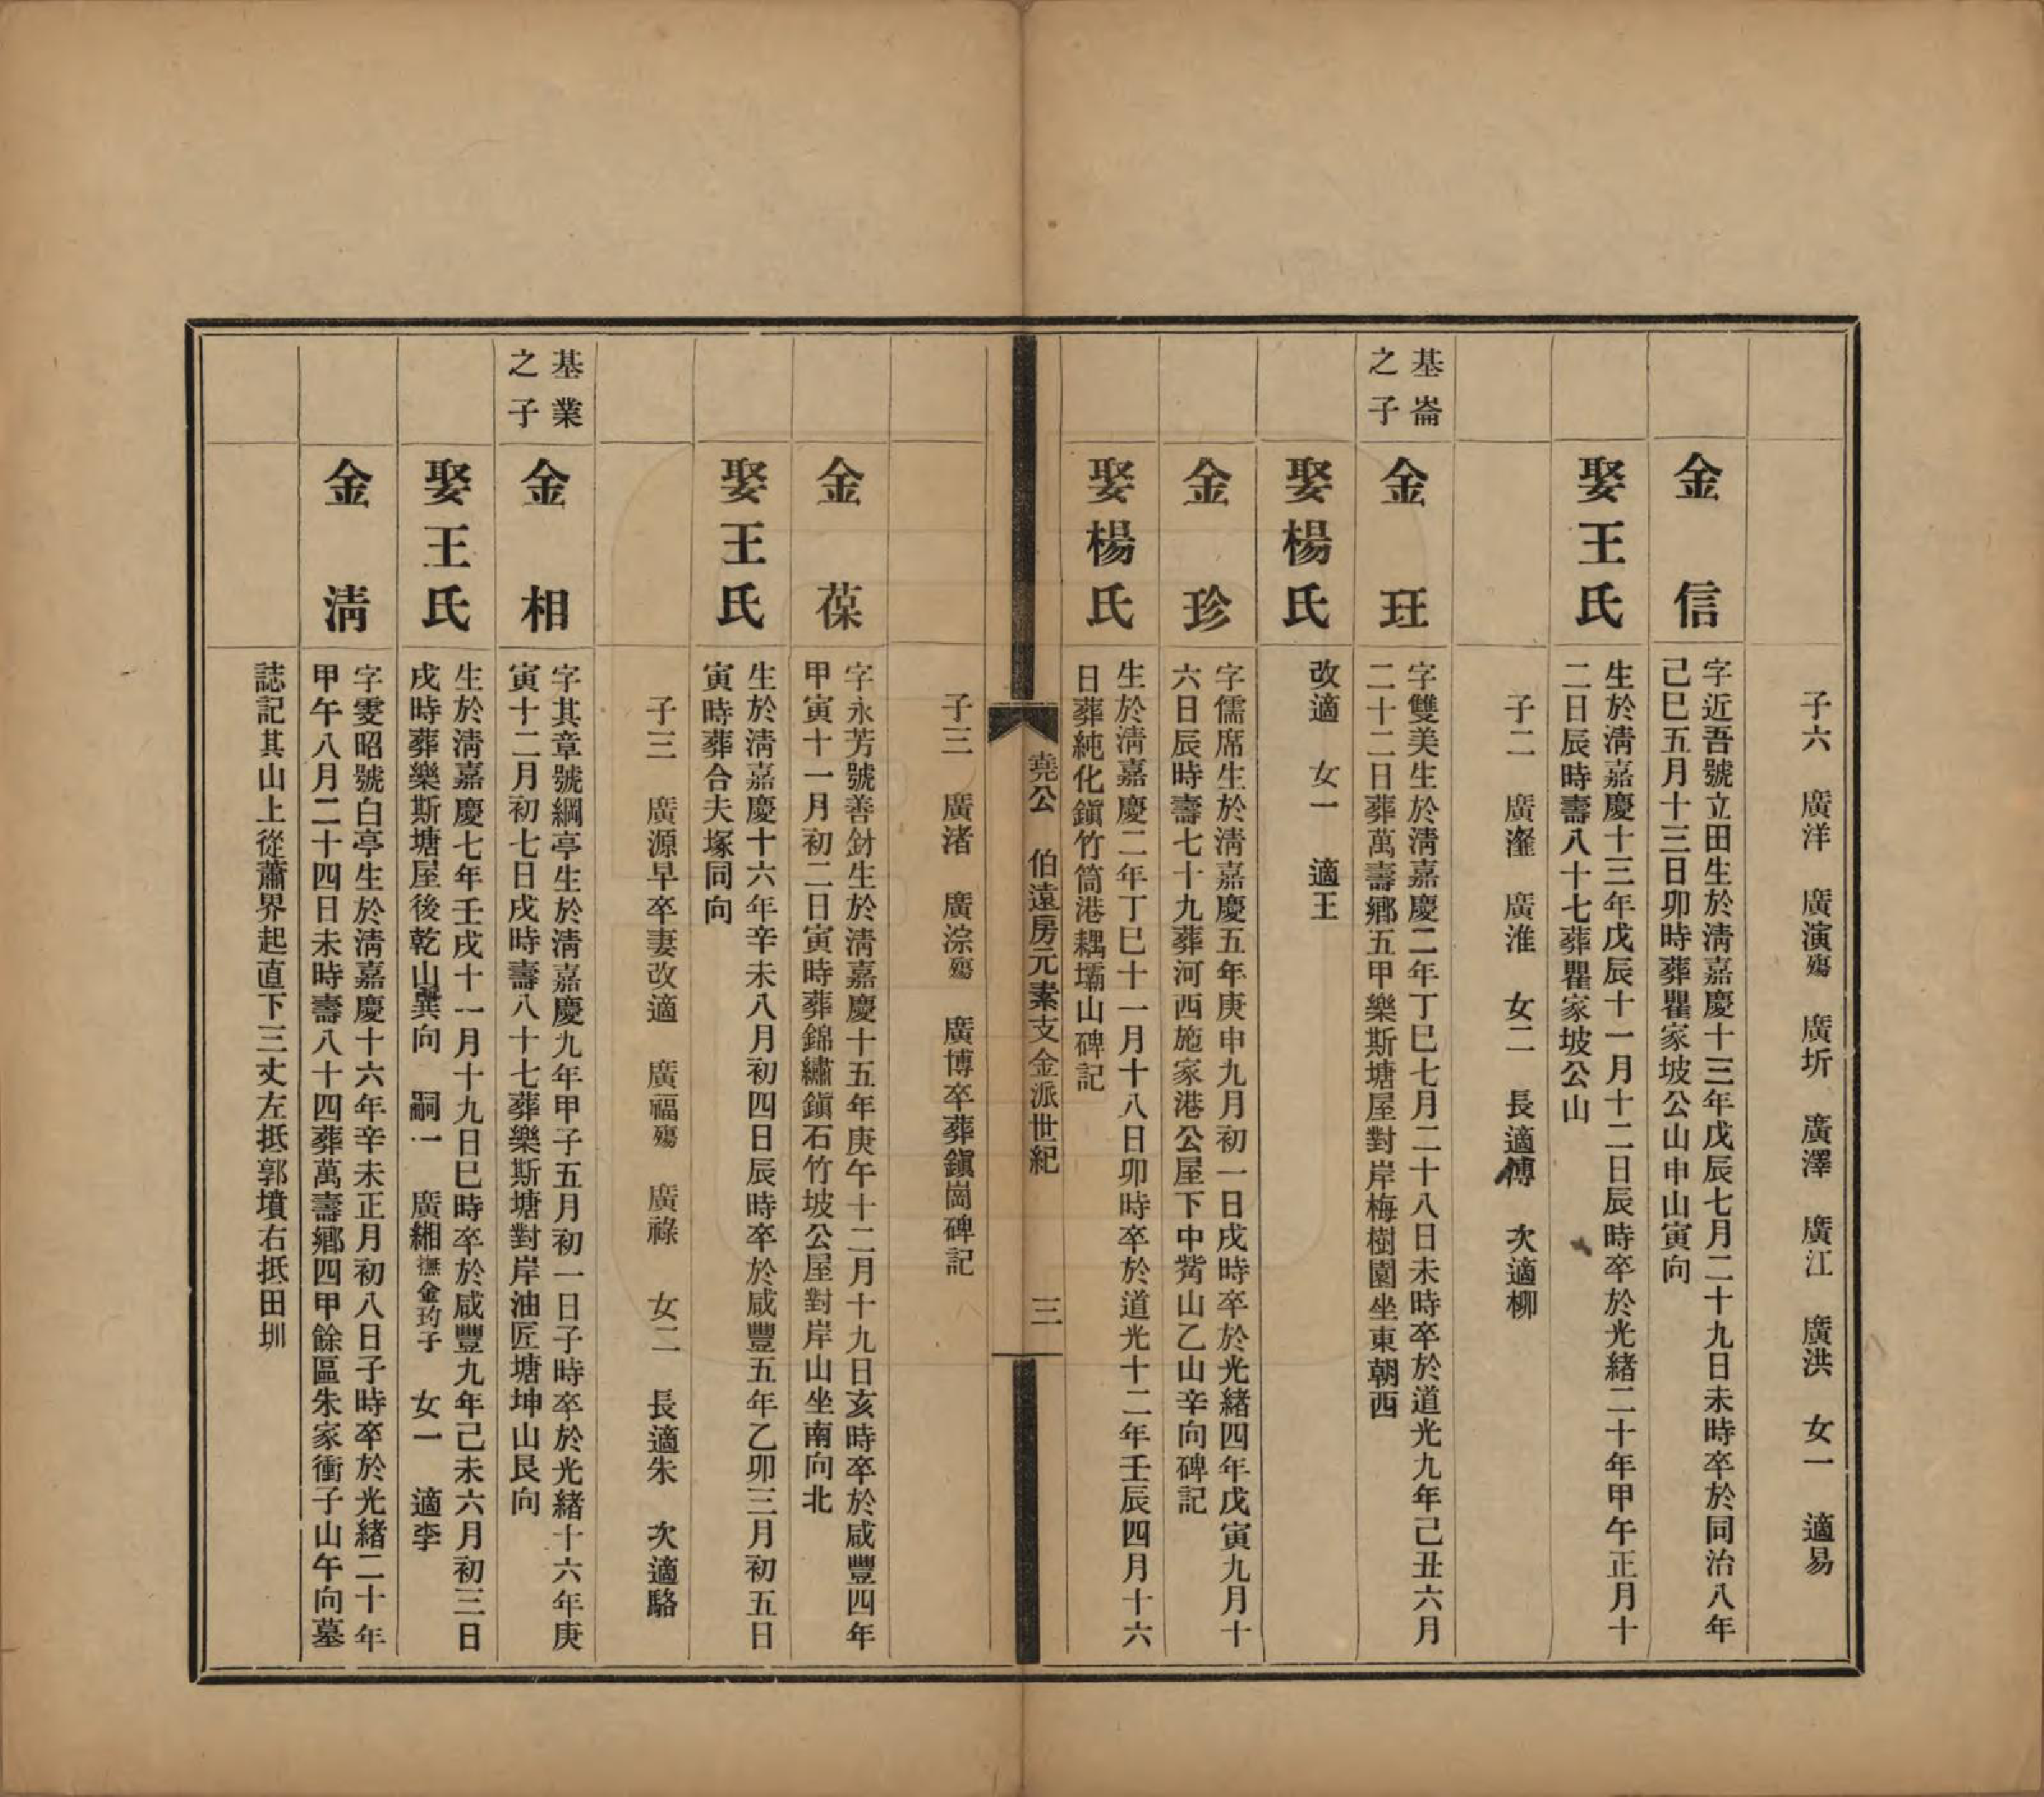 子六 廣洋 廣演殤 廣圻 廣澤 廣江 廣洪 女一 適易
金信
字近吾號立田生於清嘉慶十三年戊辰七月二十九日未時卒於同治八年
己巳五月十三日卯時葬瞿家坡公山申山寅向
娶王氏
生於清嘉慶十三年戊辰十一月十二日辰時卒於光緒二十年甲午正月十
二日辰時壽八十七葬瞿家坡公山
子二 廣瀣 廣淮 女二 長適傅 次適柳
基崙
之子
金玨
字雙美生於清嘉慶二年丁巳七月二十八日未時卒於道光九年己丑六月
二十二日葬萬壽鄉五甲樂斯塘屋對岸梅樹園坐東朝西
娶楊氏
改適 女一 適王
金珍
字儒席生於清嘉慶五年庚申九月初一日戌時卒於光緒四年戊寅九月十
六日辰時壽七十九葬河西施家港公屋下中嘴山乙山辛向碑記
娶楊氏
生於清嘉慶二年丁巳十一月十八日卯時卒於道光十二年壬辰四月十六
日葬純化鎭竹筒港耦壩山碑記
堯公 伯遠房元素支金派世紀 三
子三 廣渚 廣淙殤 廣博卒葬鎭崗碑記
金葆
字永芳號善針生於清嘉慶十五年庚午十二月十九日亥時卒於咸豐四年
甲寅十一月初二日寅時葬錦繡鎭石竹坡公屋對岸山坐南向北
娶王氏
生於清嘉慶十六年辛未八月初四日辰時卒於咸豐五年乙卯三月初五日
寅時葬合夫塚同向
子三 廣源早卒妻改適 廣福殤 廣祿 女二 長適朱 次適駱
基業
之子
金相
字其章號綱亭生於清嘉慶九年甲子五月初一日子時卒於光緒十六年庚
寅十二月初七日戌時壽八十七葬樂斯塘對岸油匠塘坤山艮向
娶王氏
生於清嘉慶七年壬戌十一月十九日巳時卒於咸豐九年己未六月初三日
戌時葬樂斯塘屋後乾山巽向 嗣一 廣緗撫金玓子 女一 適李
金淸
字雯昭號白亭生於清嘉慶十六年辛未正月初八日子時卒於光緒二十年
甲午八月二十四日未時壽八十四葬萬壽鄉四甲餘區朱家衝子山午向墓
誌記其山上從蕭界起直下三丈左抵郭墳右抵田圳